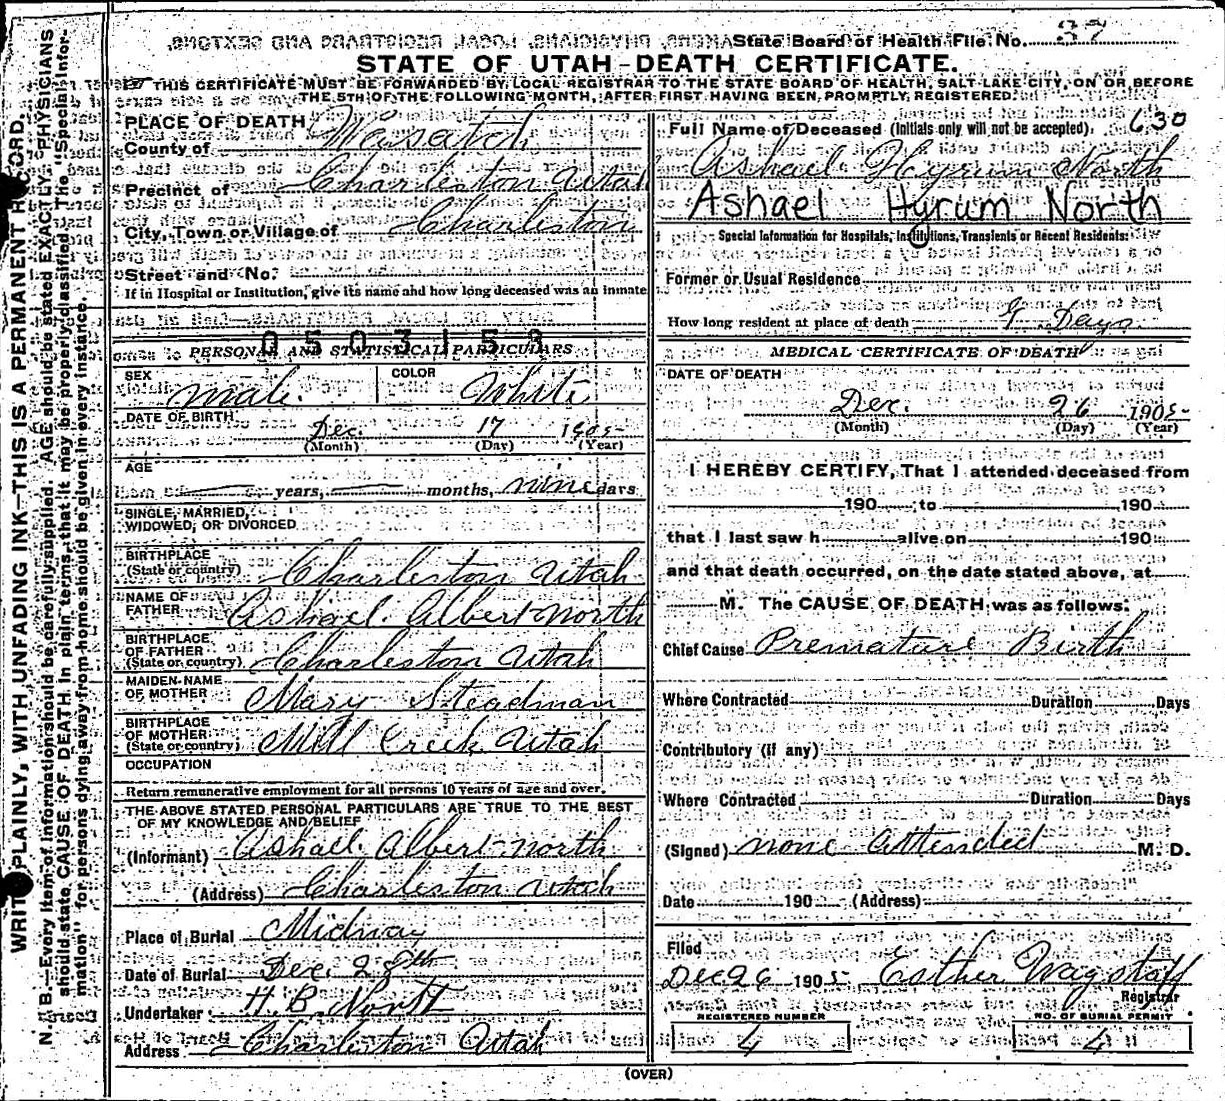 State Board of Health File No. 37
STATE OF UTAH - DEATH CERTIFICATE.
THIS CERTIFICATE MUST BE FORWARDED BY LOCAL REGISTRAR TO THE STATE BOARD OF HEALTH, SALT LAKE CITY, ON OR BEFORE
THE 5TH OF THE FOLLOWING MONTH, AFTER FIRST HAVING BEEN PROMPTLY REGISTERED.
WRITE PLAINLY, WITH UNFADING INK—THIS IS A PERMANENT RECORD.
N. B.—Every item of information should be carefully supplied. AGE should be stated EXACTLY. PHYSICIANS
should state CAUSE OF DEATH in plain terms, that it may be properly classified. The "Special Infor-
mation" for persons dying away from home should be given in every instance.
PLACE OF DEATH
County of Wasatch
Precinct of Charleston Utah
City, Town or Village of Charleston
Street and No.
If in Hospital or Institution, give its name and how long deceased was an inmate
0503158
PERSONAL AND STATISTICAL PARTICULARS
SEX male. COLOR White
DATE OF BIRTH
Dec. 17 1905
(Month) (Day) (Year)
AGE
years, months, nine days
SINGLE, MARRIED,
WIDOWED, OR DIVORCED
BIRTHPLACE
(State or country) Charleston Utah
NAME OF
FATHER Ashael Albert North
BIRTHPLACE
OF FATHER
(State or country) Charleston Utah
MAIDEN NAME
OF MOTHER Mary Steadman
BIRTHPLACE
OF MOTHER
(State or country) Mill Creek Utah
OCCUPATION
Return remunerative employment for all persons 10 years of age and over.
THE ABOVE STATED PERSONAL PARTICULARS ARE TRUE TO THE BEST
OF MY KNOWLEDGE AND BELIEF
(Informant) Ashael Albert North
(Address) Charleston Utah
Place of Burial Midway
Date of Burial Dec. 28th
Undertaker H. B. North
Address Charleston Utah
Full Name of Deceased (Initials only will not be accepted). 630
Ashael Hyrum North
Ashael Hyrum North
Special Information for Hospitals, Institutions, Transients or Recent Residents:
Former or Usual Residence
How long resident at place of death 9 Days
MEDICAL CERTIFICATE OF DEATH
DATE OF DEATH
Dec. 26 1905
(Month) (Day) (Year)
I HEREBY CERTIFY, That I attended deceased from
190 to 190
that I last saw h alive on 190
and that death occurred, on the date stated above, at
M. The CAUSE OF DEATH was as follows:
Chief Cause Premature Birth
Where Contracted Duration Days
Contributory (if any)
Where Contracted Duration Days
(Signed) none attended M. D.
Date 190 (Address)
Filed
Dec 26 1905 Esther Wagstaff
Registrar
REGISTERED NUMBER NO. OF BURIAL PERMIT
4 4
(OVER)